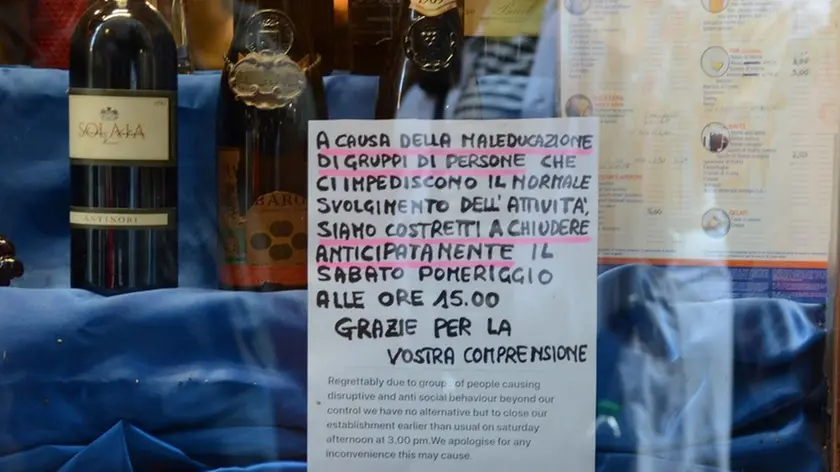 SOLAIA
ANTINORI
BARO
A CAUSA DELLA MALEDUCAZIONE
DI GRUPPI DI PERSONE CHE
CI IMPEDISCONO IL NORMALE
SVOLGIMENTO DELL'ATTIVITÀ,
SIAMO COSTRETTI A CHIUDERE
ANTICIPATANENTE IL
SABATO POMERIGGIO
ALLE ORE 15.00
GRAZIE PER LA
VOSTRA COMPRENSIONE
Regrettably due to groups of people causing
disruptive and anti social behaviour beyond our
control we have no alternative but to close our
establishment earlier than usual on saturday
afternoon at 3.00 pm.We apologise for any
inconvenience this may cause.